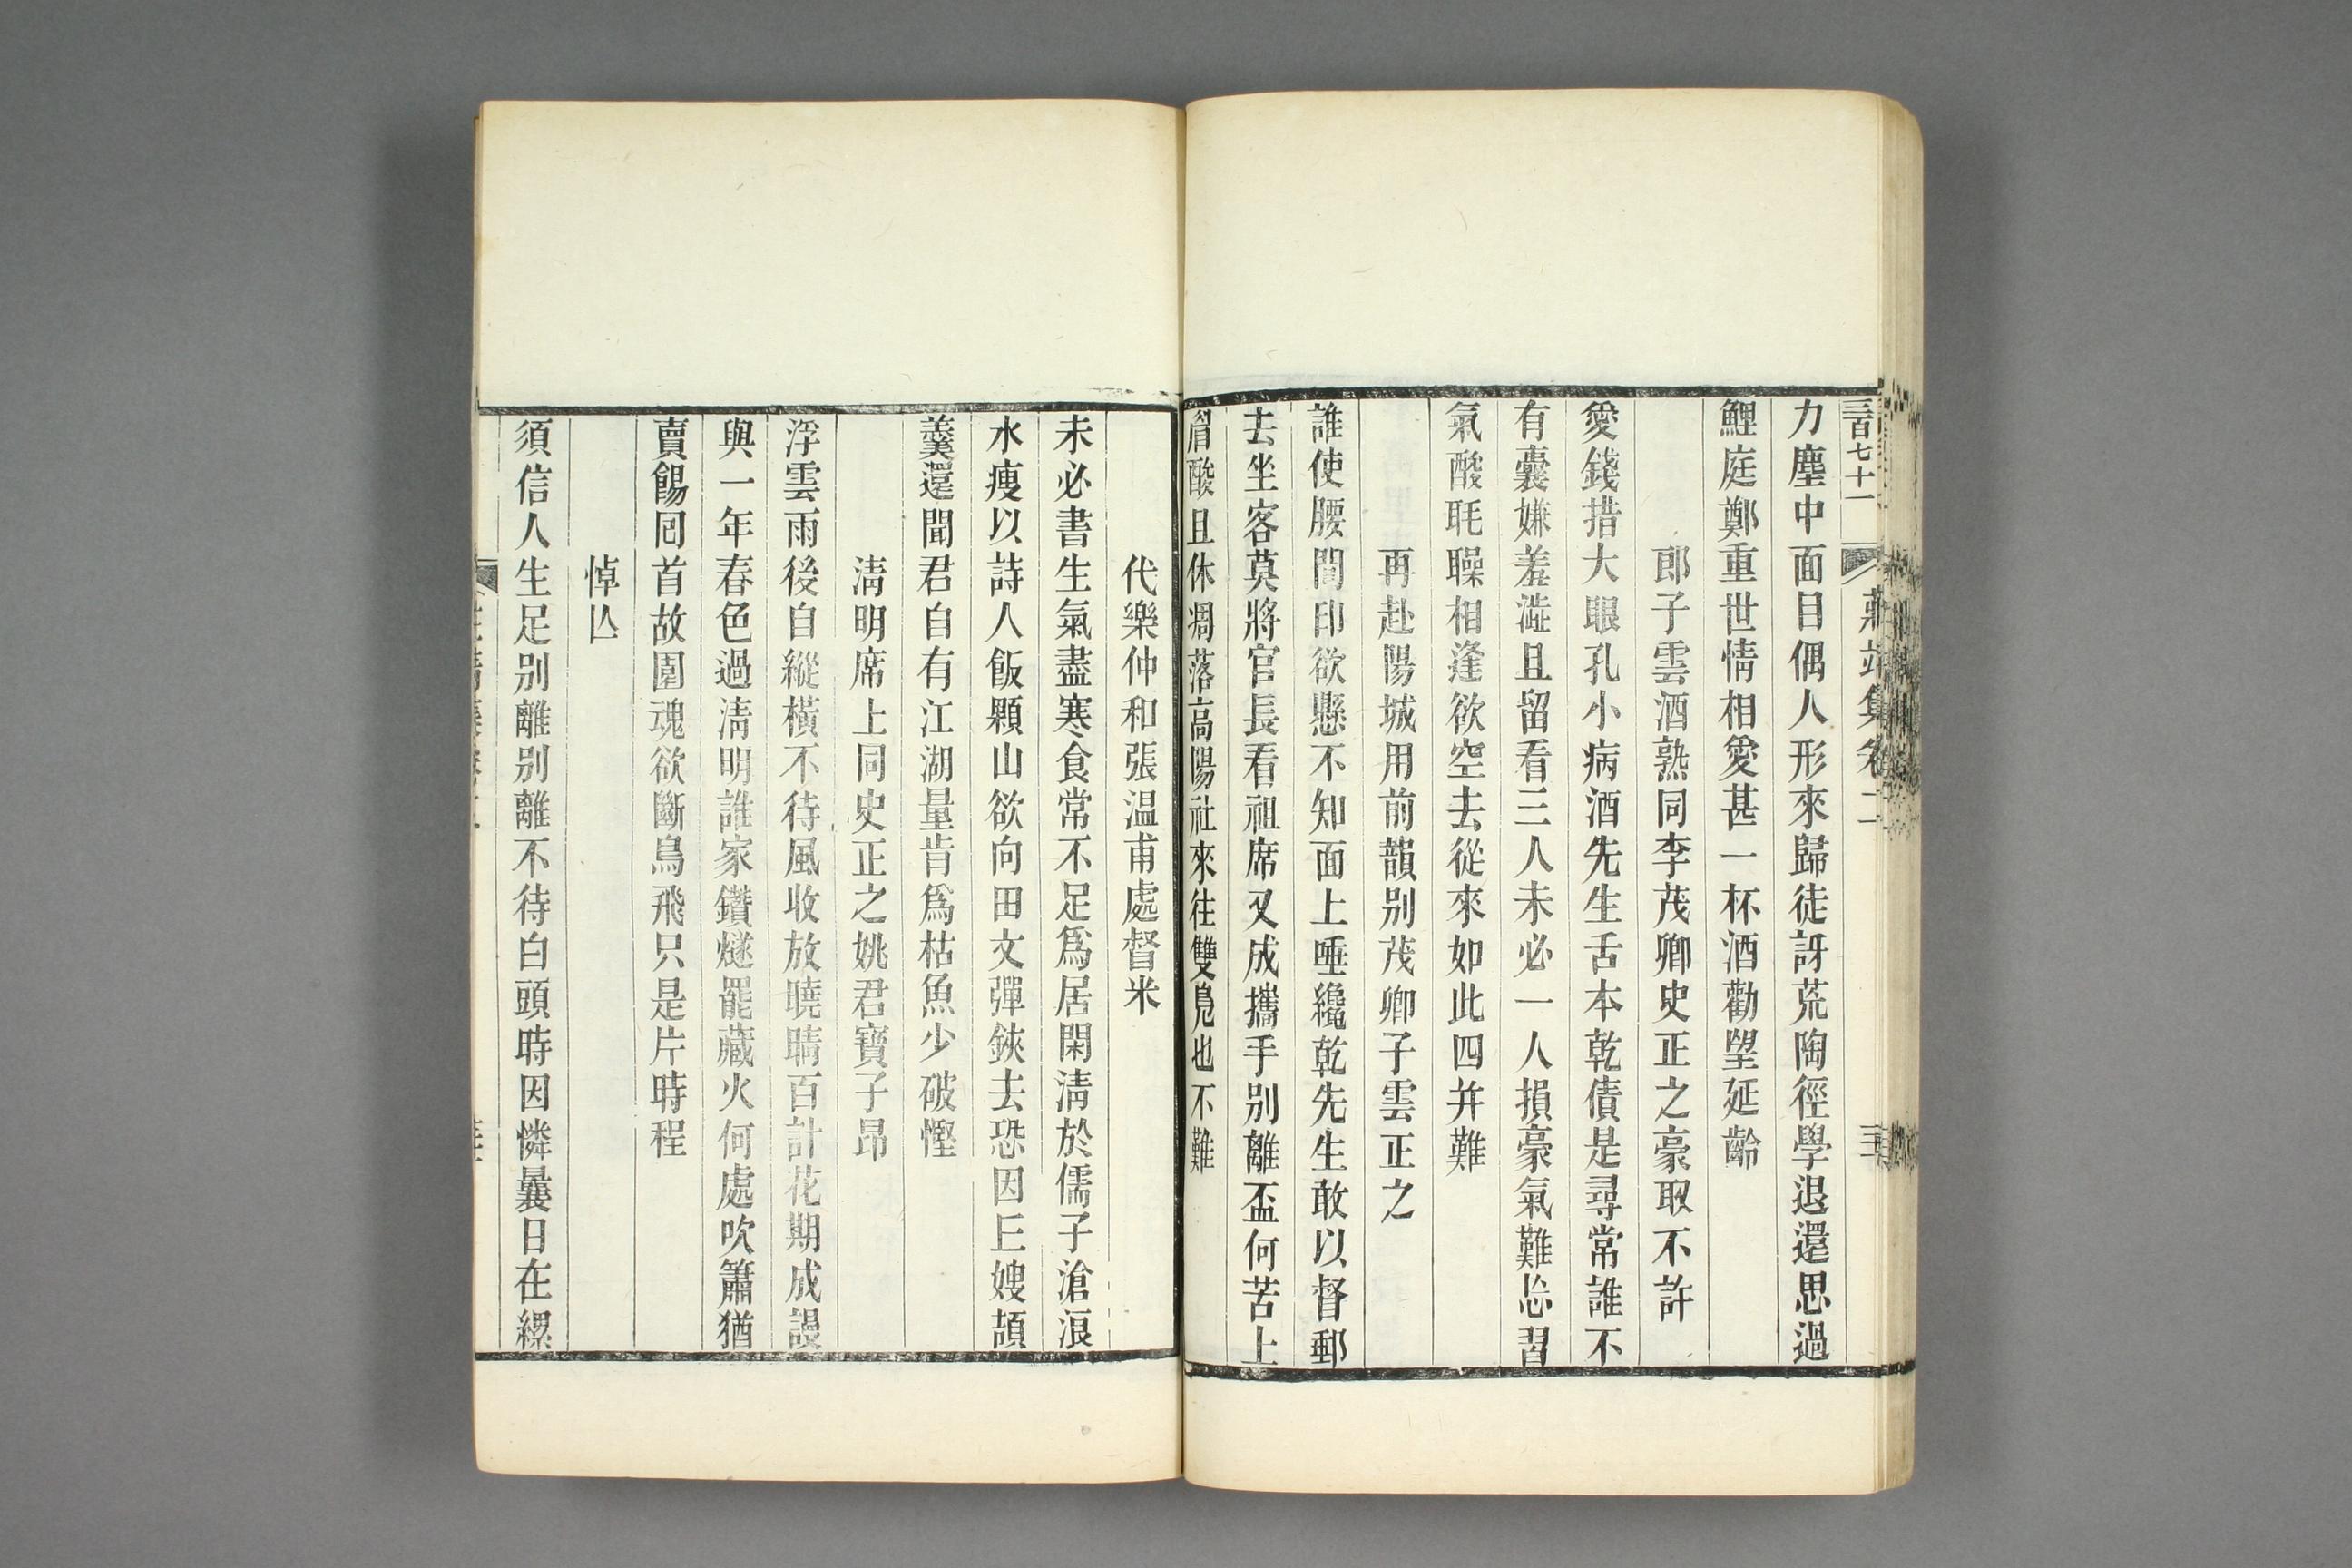 三百七十一
莊靖集卷二
力塵中面目偶人形來歸徒訝荒陶徑學退還思過
鯉庭鄭重世情相愛甚一杯酒勸望延齡
郎子雲酒熟同李茂卿史正之豪取不許
愛錢措大眼孔小病酒先生舌本乾債是尋常誰不
有囊嫌羞澁且留看三人未必一人損豪氣難忘習
氣酸眊矂相逢欲空去從來如此四并難
再赴陽城用前韻别茂卿子雲正之
誰使腰間印欲懸不知面上唾纔乾先生敢以督郵
去坐客莫將官長看祖席又成攜手别離盃何苦上
眉酸且休凋落高陽社來往雙鳧也不難
代樂仲和張温甫處督米
未必書生氣盡寒食常不足爲居閑淸於儒子滄浪
水瘦以詩人飯顆山欲向田文彈鋏去恐因丘嫂頡
羹還聞君自有江湖量肯爲枯魚少破慳
淸明席上同史正之姚君寶子昂
浮雲雨後自縱橫不待風收放曉晴百計花期成謾
與一年春色過淸明誰家鑽燧罷藏火何處吹簫猶
賣餳囘首故園魂欲斷鳥飛只是片時程
悼亾
須信人生足别離别離不待白頭時因憐曩日在縲